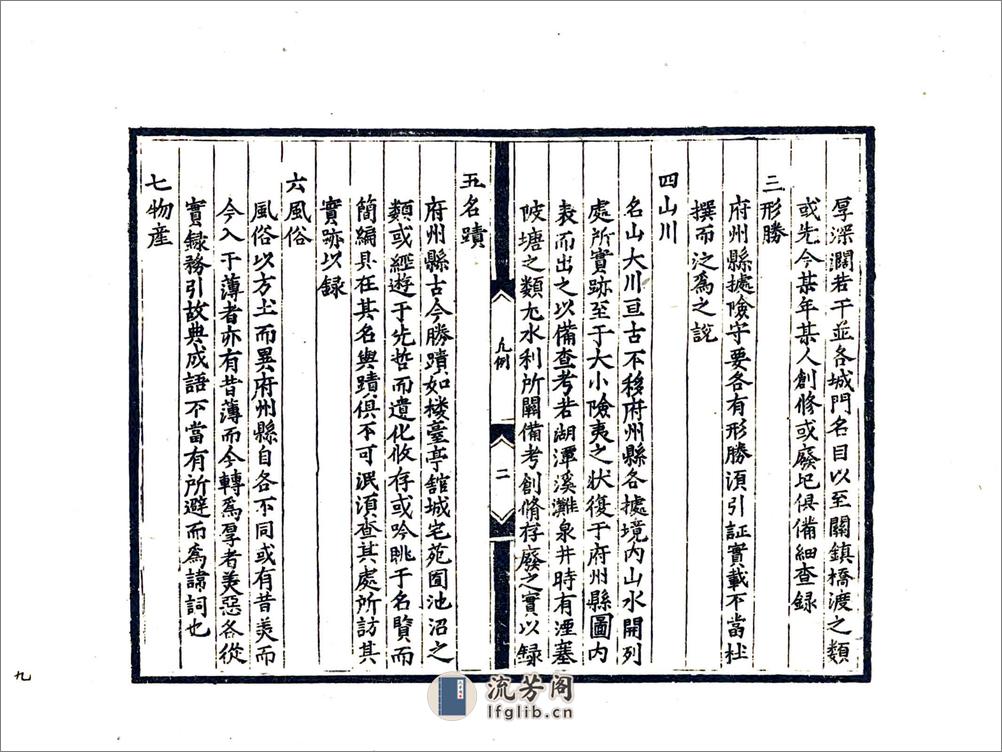 厚深濶若干並各城門名目以至關鎮橋渡之類
或先今某年某人創修或廢圮俱備細查録
三形勝
府州縣據險守要各有形勝湏引証實載不當杜
撰而泛爲之説
四山川
名山大川亘古不移府州縣各據境内山水開列
處所實跡至于大小險夷之状復于府州縣圖内
表而出之以備查考若湖潭溪灘泉井時有湮塞
陂塘之類尤水利所關備考創脩存廢之實以録
凡例
二
五名蹟
府州縣古今勝蹟如楼臺亭舘城宅苑囿池沼之
類或經遊于先哲而遺化攸存或吟眺于名賢而
簡編具在其名與蹟俱不可泯湏查其處所訪其
實跡以録
六風俗
風俗以方土而異府州縣自各不同或有昔美而
今入于薄者亦有昔薄而今轉爲厚者美惡各從
實録務引故典成語不當有所避而爲諱詞也
七物産
九
流芳阁
lfglib.cn